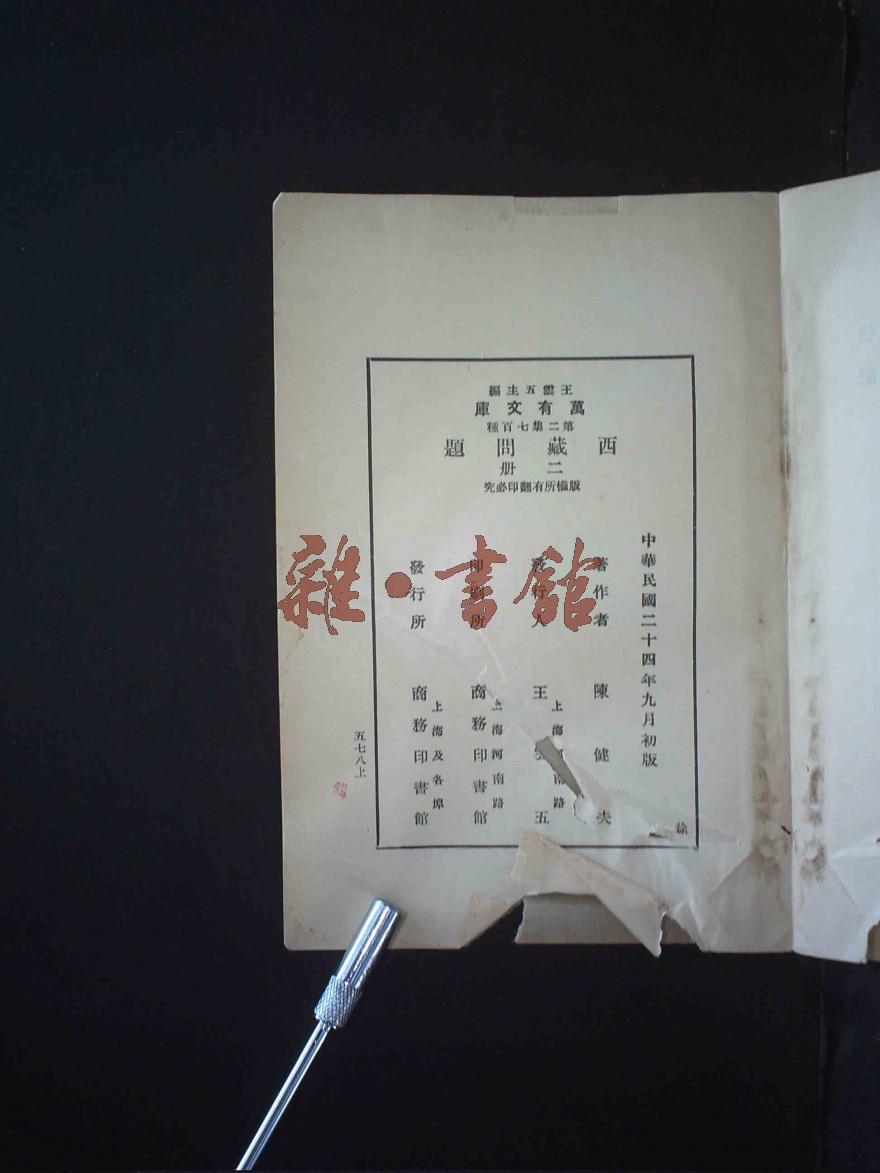 王雲五主編
萬有文庫
第二集七百種
西藏問題
二册
版權所有翻印必究
中華民國二十四年九月初版
著作者 陳健夫
發行人 王雲五
上海河南路
印刷所 商務印書館
上海河南路
發行所 商務印書館
上海及各埠
五七八上
徐
雜·書館